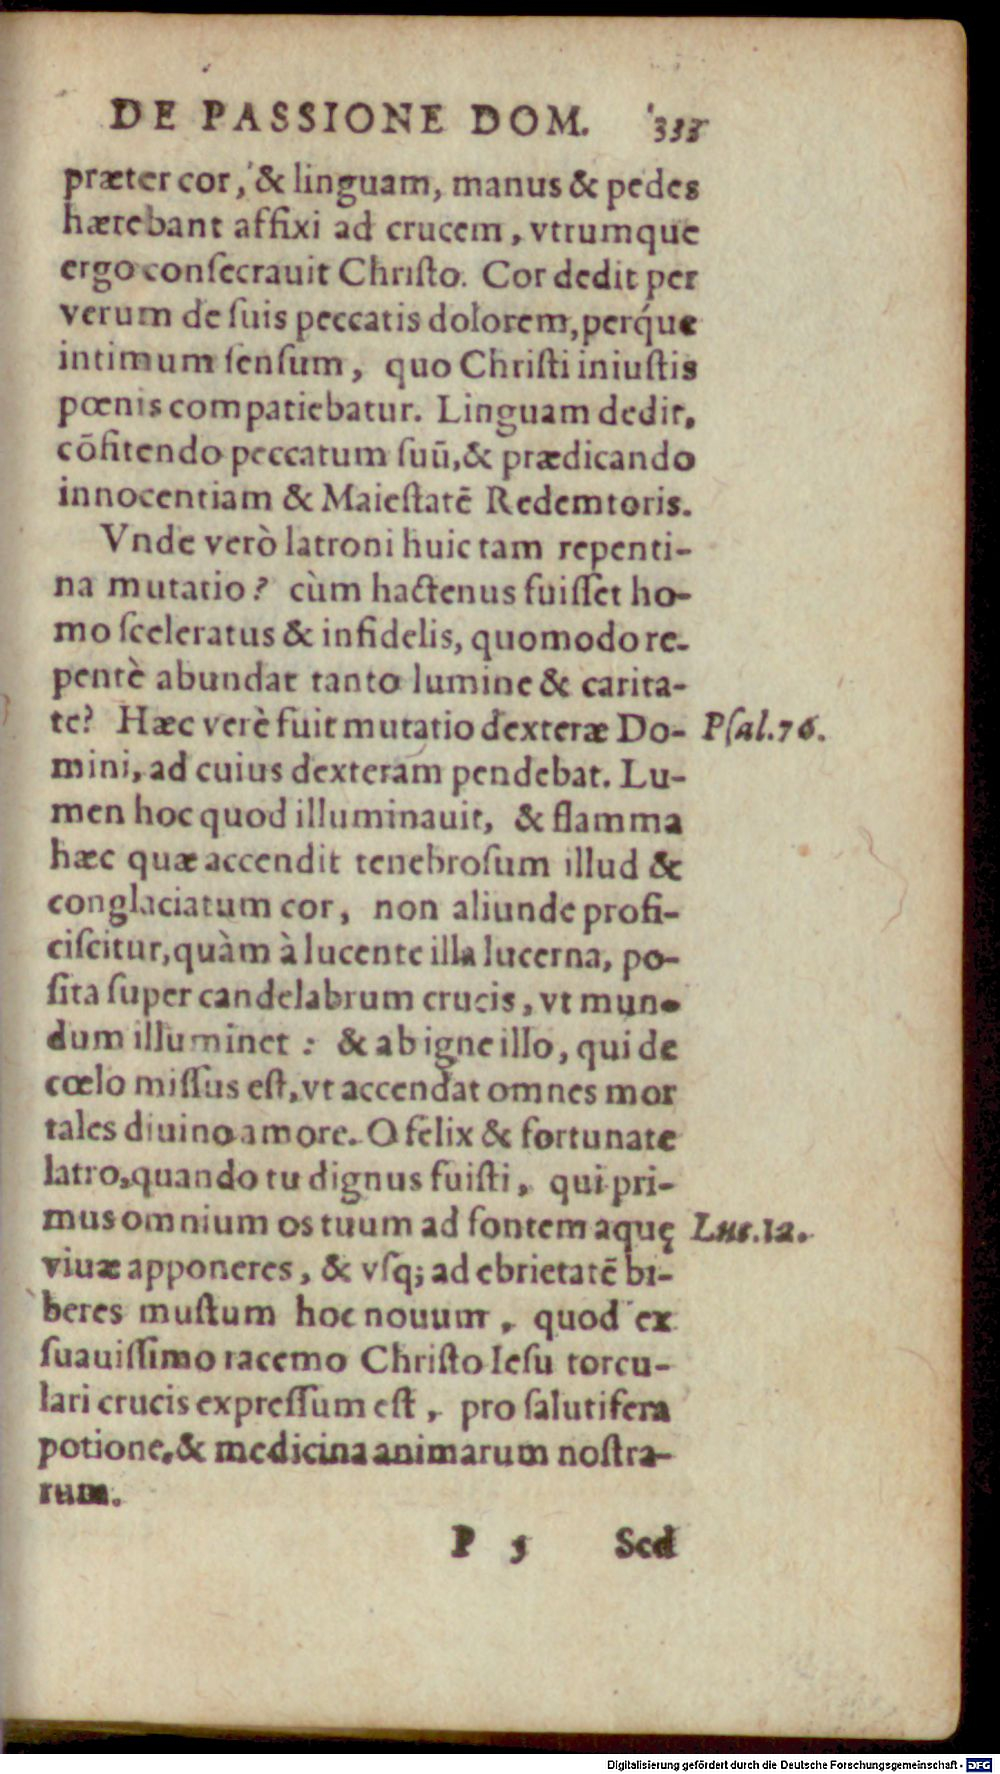 DE PASSIONE DOM.
præter cor, & linguam, manus & pedes
hærebant affixi ad crucem, vtrumque
ergo conſecrauit Chriſto. Cor dedit per
verum de ſuis peccatis dolorem, perq́ue
intimum ſenſum, quo Chriſti iniuſtis
pœnis compatiebatur. Linguam dedit,
cōfitendo peccatum ſuū, & prædicando
innocentiam & Maieſtatē Redemtoris.
Vnde verò latroni huic tam repenti-
na mutatio? cùm hactenus fuiſſet ho-
mo ſceleratus & infidelis, quomodo re-
pentè abundat tanto lumine & carita-
te? Hæc verè fuit mutatio dexteræ Do- Pſal.76.
mini, ad cuius dexteram pendebat. Lu-
men hoc quod illuminauit, & flamma
hæc quæ accendit tenebroſum illud &
conglaciatum cor, non aliunde profi-
ciſcitur, quàm à lucente illa lucerna, po-
ſita ſuper candelabrum crucis, vt mun-
dum illuminet: & ab igne illo, qui de
cœlo miſſus eſt, vt accendat omnes mor
tales diuino amore. O felix & fortunate
latro, quando tu dignus fuiſti, qui pri-
mus omnium os tuum ad fontem aquę Luc.12.
viuæ apponeres, & vſq; ad ebrietatē bi-
beres muſtum hoc nouum, quod ex
ſuauiſſimo racemo Chriſto Ieſu torcu-
lari crucis expreſſum eſt, pro ſalutifera
potione, & medicina animarum noſtra-
rum.
P 5 Sed
Digitalisierung gefördert durch die Deutsche Forschungsgemeinschaft - DFG